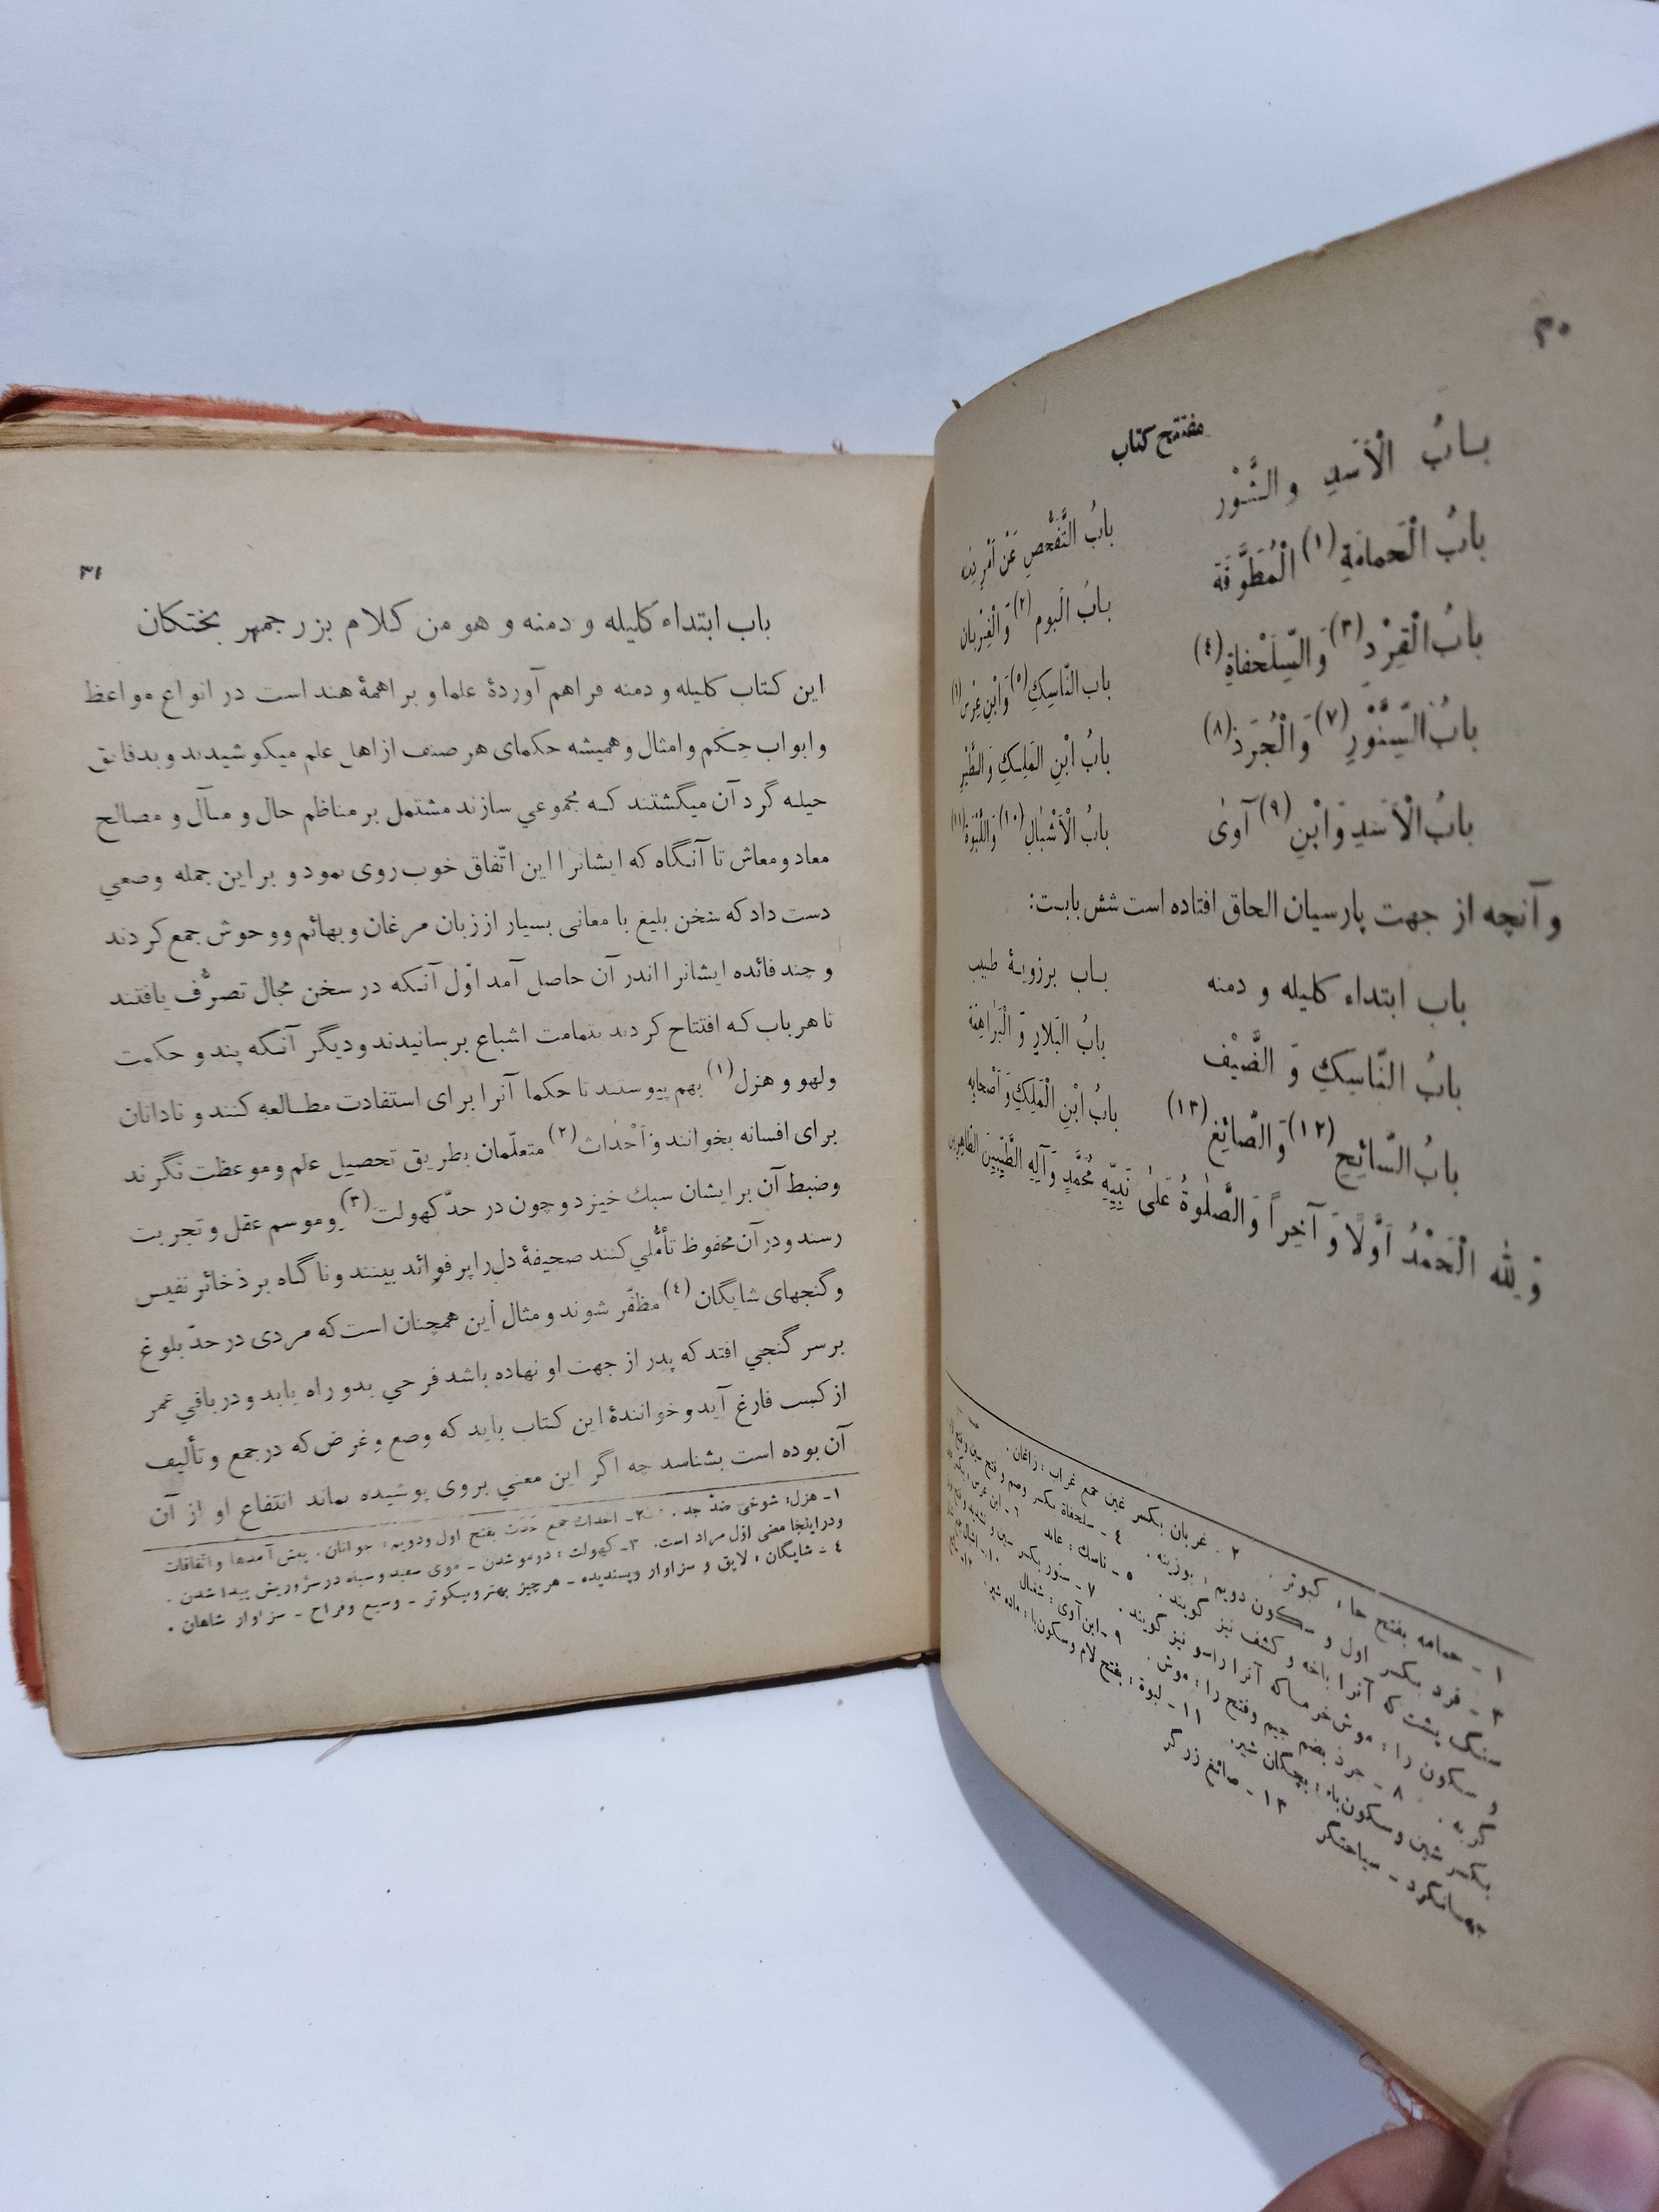 ۳۰
مفتتح کتاب
بابُ الْأَسَدِ والثَّوْر
بابُ التَّفَحُّصِ عَنْ أَمْرِ دِمْنه
بابُ الْحَمامَةِ(۱) الْمُطَوَّقَة
بابُ البوم(۲) وَالْغِرْبان
بابُ الْقِرْدِ(۳) وَالسِّلَحْفاةِ(٤)
باب النّاسِكِ(٥) وَابْنِ عِرْس(٦)
بابُ السِّنَّوْرِ(۷) وَالْجُرَذ(۸)
بابُ ابْنِ المَلِكِ وَالطَّیْرِ
بابُ الْأَسَدِ وَابْنِ(۹) آوىٰ
بابُ الْأَشْبالِ(۱۰) وَاللَّبْوَة(۱۱)
و آنچه از جهت پارسیان الحاق افتاده است شش بابست:
باب ابتداء کلیله و دمنه
بـاب برزویـهٔ طبیب
بابُ النّاسِكِ وَ الضَّیْف
بابُ البَلارِ وَ الْبَراهِمَة
بابُ السّائِحِ(۱۲) وَالصّائِغ(۱۳)
بابُ ابْنِ الْمَلِكِ وَ أَصْحابِه
وَ لِلّٰهِ الْحَمْدُ أَوَّلاً وَ آخِراً وَ الصَّلٰوةُ عَلىٰ نَبِیِّهِ مُحَمَّدٍ وَ آلِهِ الطَّیِّبِینَ الطاهِرِین
۱ - حمامه بفتح حا، کبوتر. ۲ - غربان بکسر غین جمع غراب: زاغان.
۳ - قرد بکسر اول و سکون دویم، بوزینه. ٤ - سلحفاة بکسر وضم و فتح سین و فتح
سنگ پشت که آنرا باخه و کشف نیز گویند. ٥ - ناسك: عابد ٦ - ابن عرس بکسر
و سکون را: موش خرما که آنرا راسو نیز گویند. ۷ - سنور بکسر سین و تشدید و فتح
گربه. ۸ - جرذ بضم جیم وفتح را، موش. ۹ - ابن آوی: شغال ۱۰ - اشبال
بکسر شین و سکون با: بچگان شیر. ۱۱ - لبوة: بفتح لام وسکون با، ماده شیر.
سیاحتگر ۱۳ - صائغ زرگر
۳۱
باب ابتداء کلیله و دمنه و هو من کلام بزرجمهر بختکان
این کتاب کلیله و دمنه فراهم آوردهٔ علما و براهمهٔ هند است در انواع مواعظ
وابواب حِکَم و امثال و همیشه حکمای هر صنف از اهل علم میکوشیدند و بدقایق
حیلـه گرد آن میگشتند کـه مجموعي سازند مشتمل بر مناظم حال و مـآل و مصالح
معاد و معاش تا آنـگاه که ایشانرا این اتّفاق خوب روی نمود و بر این جمله وضعي
دست داد که سخن بلیغ با معانی بسیار از زبان مرغان و بهائم و وحوش جمع کردند
و چند فائده ایشانرا اندر آن حاصل آمد اوّل آنـکه در سخن مجال تصرُّف یافتند
تا هر باب کـه افتتاح کردند بتمامت اشباع برسانیدند و دیگر آنـکه پند و حکمت
ولهو و هزل(۱) بهم پیوستند تا حکما آنرا برای استفادت مطـالعه کنند و نادانان
برای افسانه بخوانند و أَحْداث(۲) متعلّمان بطریق تحصیل علم و موعظت نگرند
وضبط آن بر ایشان سبك خیزد و چون در حدّ کهولت(۳) و موسم عقل و تجربت
رسند و در آن محفوظ تأمُّلي کنند صحیفهٔ دل را پر فوائد بینند و ناگـاه بر ذخائر نفیس
و گنجهای شایگان(٤) مظفّر شوند و مثال این همچنان است که مردی در حدّ بلوغ
بر سر گنجي افتد که پدر از جهت او نهاده باشد فرحي بدو راه یابد و در باقي عمر
از کسب فارغ آید و خوانندهٔ این کتاب باید که وضع و غرض که در جمع و تألیف
آن بوده است بشناسد چه اگر این معني بروی پوشیده بماند انتفاع او از آن
۱- هزل: شوخی ضدّ جد. ۲- احداث جمع حَدَث بفتح اول ودویم: جوانان. پیش آمدها و اتّفاقات
ودر اینجا معنی اوّل مراد است. ۳- کهولت: دوموشدن - موی سفید و سیاه در سر و ریش پیدا شدن.
٤ - شایگان: لایق و سزاوار و پسندیده - هرچیز بهتر و نیکوتر - وسیع و فراخ - سزاوار شاهان.